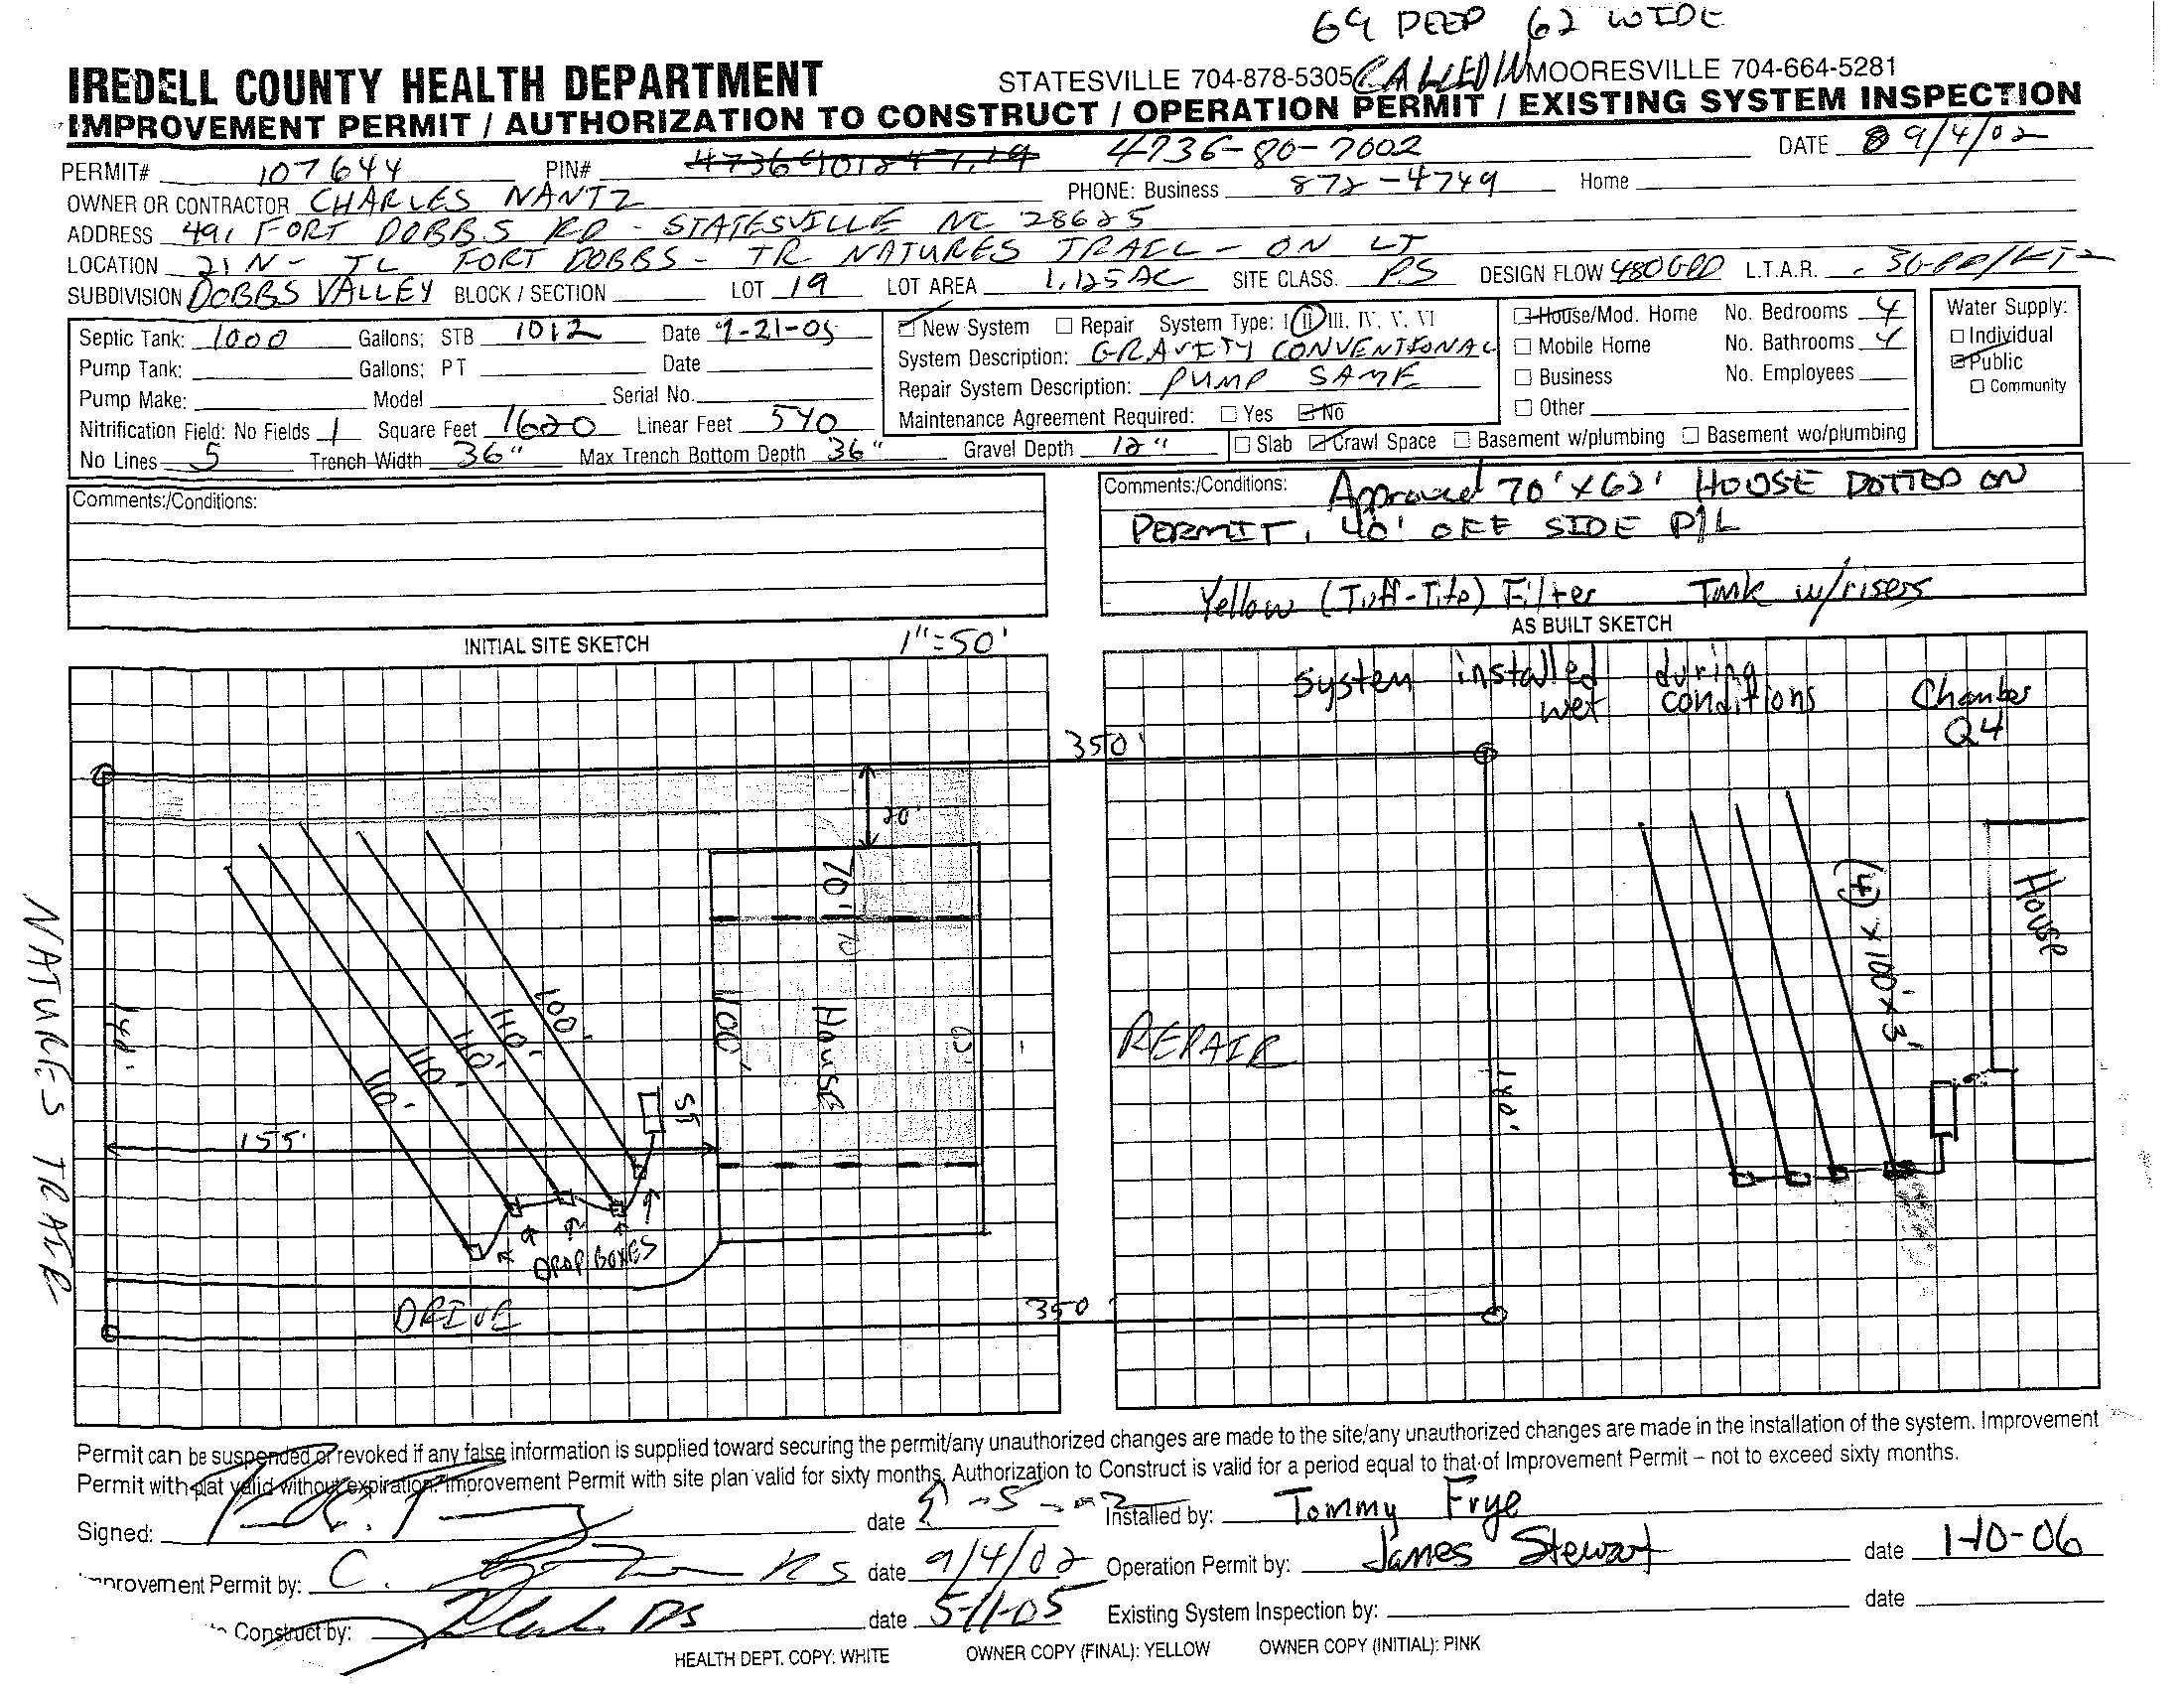 69 DEEP 62 WIDE
IREDELL COUNTY HEALTH DEPARTMENT STATESVILLE 704-878-5305 CALLED IN MOORESVILLE 704-664-5281
IMPROVEMENT PERMIT / AUTHORIZATION TO CONSTRUCT / OPERATION PERMIT / EXISTING SYSTEM INSPECTION
PERMIT# 107644 PIN# 4736-80-7002 DATE 9/4/02
OWNER OR CONTRACTOR CHARLES NANTZ PHONE: Business 872-4749 Home
ADDRESS 491 FORT DOBBS RD - STATESVILLE NC 28625
LOCATION 21 N - TL FORT DOBBS - TR NATURES TRAIL - ON LT
SUBDIVISION DOBBS VALLEY BLOCK / SECTION LOT 19 LOT AREA 1.125 AC SITE CLASS. PS DESIGN FLOW 480 GPD L.T.A.R. .3 GPD/FT2
Septic Tank: 1000 Gallons; STB 1012 Date 9-21-05
Pump Tank: Gallons; PT Date
Pump Make: Model Serial No.
Nitrification Field: No Fields 1 Square Feet 1620 Linear Feet 540
No Lines 5 Trench Width 36" Max Trench Bottom Depth 36" Gravel Depth 12"
New System Repair System Type: I II III, IV, V, VI
System Description: GRAVITY CONVENTIONAL
Repair System Description: PUMP SAME
Maintenance Agreement Required: Yes No
Slab Crawl Space Basement w/plumbing Basement wo/plumbing
House/Mod. Home No. Bedrooms 4
Mobile Home No. Bathrooms 4
Business No. Employees
Other
Water Supply:
Individual
Public
Community
Comments:/Conditions:
Comments:/Conditions: Approved 70' x 62' HOUSE DOTTED ON
PERMIT, 40' OFF SIDE P/L
Yellow (Tuff-Tite) Filter Tank w/risers
INITIAL SITE SKETCH 1"=50'
AS BUILT SKETCH
System installed during
wet conditions
Chamber
Q4
350'
20'
70'
100'
House
140'
NATURES TRAIL
110'
110'
110'
110'
100'
155'
ST
DROP BOXES
DRIVE
350'
REPAIR
140'
(4) x 100' x 3'
House
Permit can be suspended or revoked if any false information is supplied toward securing the permit/any unauthorized changes are made to the site/any unauthorized changes are made in the installation of the system. Improvement
Permit with plat valid without expiration. Improvement Permit with site plan valid for sixty months. Authorization to Construct is valid for a period equal to that of Improvement Permit – not to exceed sixty months.
Signed: date Installed by: Tommy Frye
provement Permit by: C. RS date 9/4/02 Operation Permit by: James Stewart date 1-10-06
Construct by: date 5-11-05 Existing System Inspection by: date
HEALTH DEPT. COPY: WHITE OWNER COPY (FINAL): YELLOW OWNER COPY (INITIAL): PINK